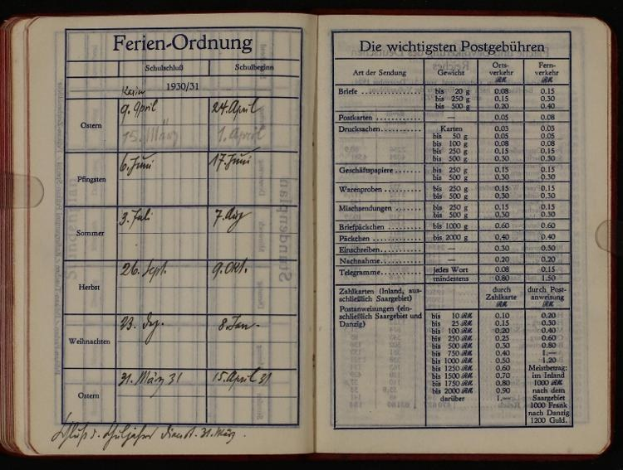 Ferien-Ordnung
Schulschluß Schulbeginn
1930/31
Ostern 9. April 24. April
15. März 1. April
Pfingsten 6. Juni 17. Juni
Sommer 3. Juli 7. Aug
Herbst 26. Sept. 9. Okt.
Weihnachten 23. Dez. 8 Jan.
Ostern 31. März 31 15. April 31
Schluß d. Schuljahres Dienst. 31. März.
Die wichtigsten Postgebühren
Art der Sendung Gewicht Orts-verkehr RM Fern-verkehr RM
Briefe bis 20 g 0.08 0.15
bis 250 g 0.15 0.30
bis 500 g 0.20 0.40
Postkarten — 0.05 0.08
Drucksachen Karten 0.05 0.05
bis 50 g 0.05 0.05
bis 100 g 0.08 0.08
bis 250 g 0.15 0.15
bis 500 g 0.30 0.30
Geschäftspapiere bis 250 g 0.15 0.15
bis 500 g 0.30 0.30
Warenproben bis 250 g 0.15 0.15
bis 500 g 0.30 0.30
Mischsendungen bis 250 g 0.15 0.15
bis 500 g 0.30 0.30
Briefpäckchen bis 1000 g 0.60 0.60
Päckchen bis 2000 g 0.40 0.40
Einschreiben — 0.30 0.30
Nachnahme — 0.20 0.20
Telegramme jedes Wort 0.08 0.15
mindestens 0.80 1.50
Zahlkarten (Inland, aus-
schließlich Saargebiet)
Postanweisungen (ein-
schließlich Saargebiet und
Danzig)
durch Zahlkarte RM durch Post-anweisung RM
bis 10 RM 0.10 0.20
bis 25 RM 0.15 0.30
bis 100 RM 0.20 0.40
bis 250 RM 0.25 0.60
bis 500 RM 0.30 0.80
bis 750 RM 0.40 1.—
bis 1000 RM 0.50 1.20
bis 1250 RM 0.60 Meistbetrag:
bis 1500 RM 0.70 im Inland
bis 1750 RM 0.80 1000 RM
bis 2000 RM 0.90 nach dem
darüber 1.— Saargebiet
1000 Frank
nach Danzig
1200 Guld.